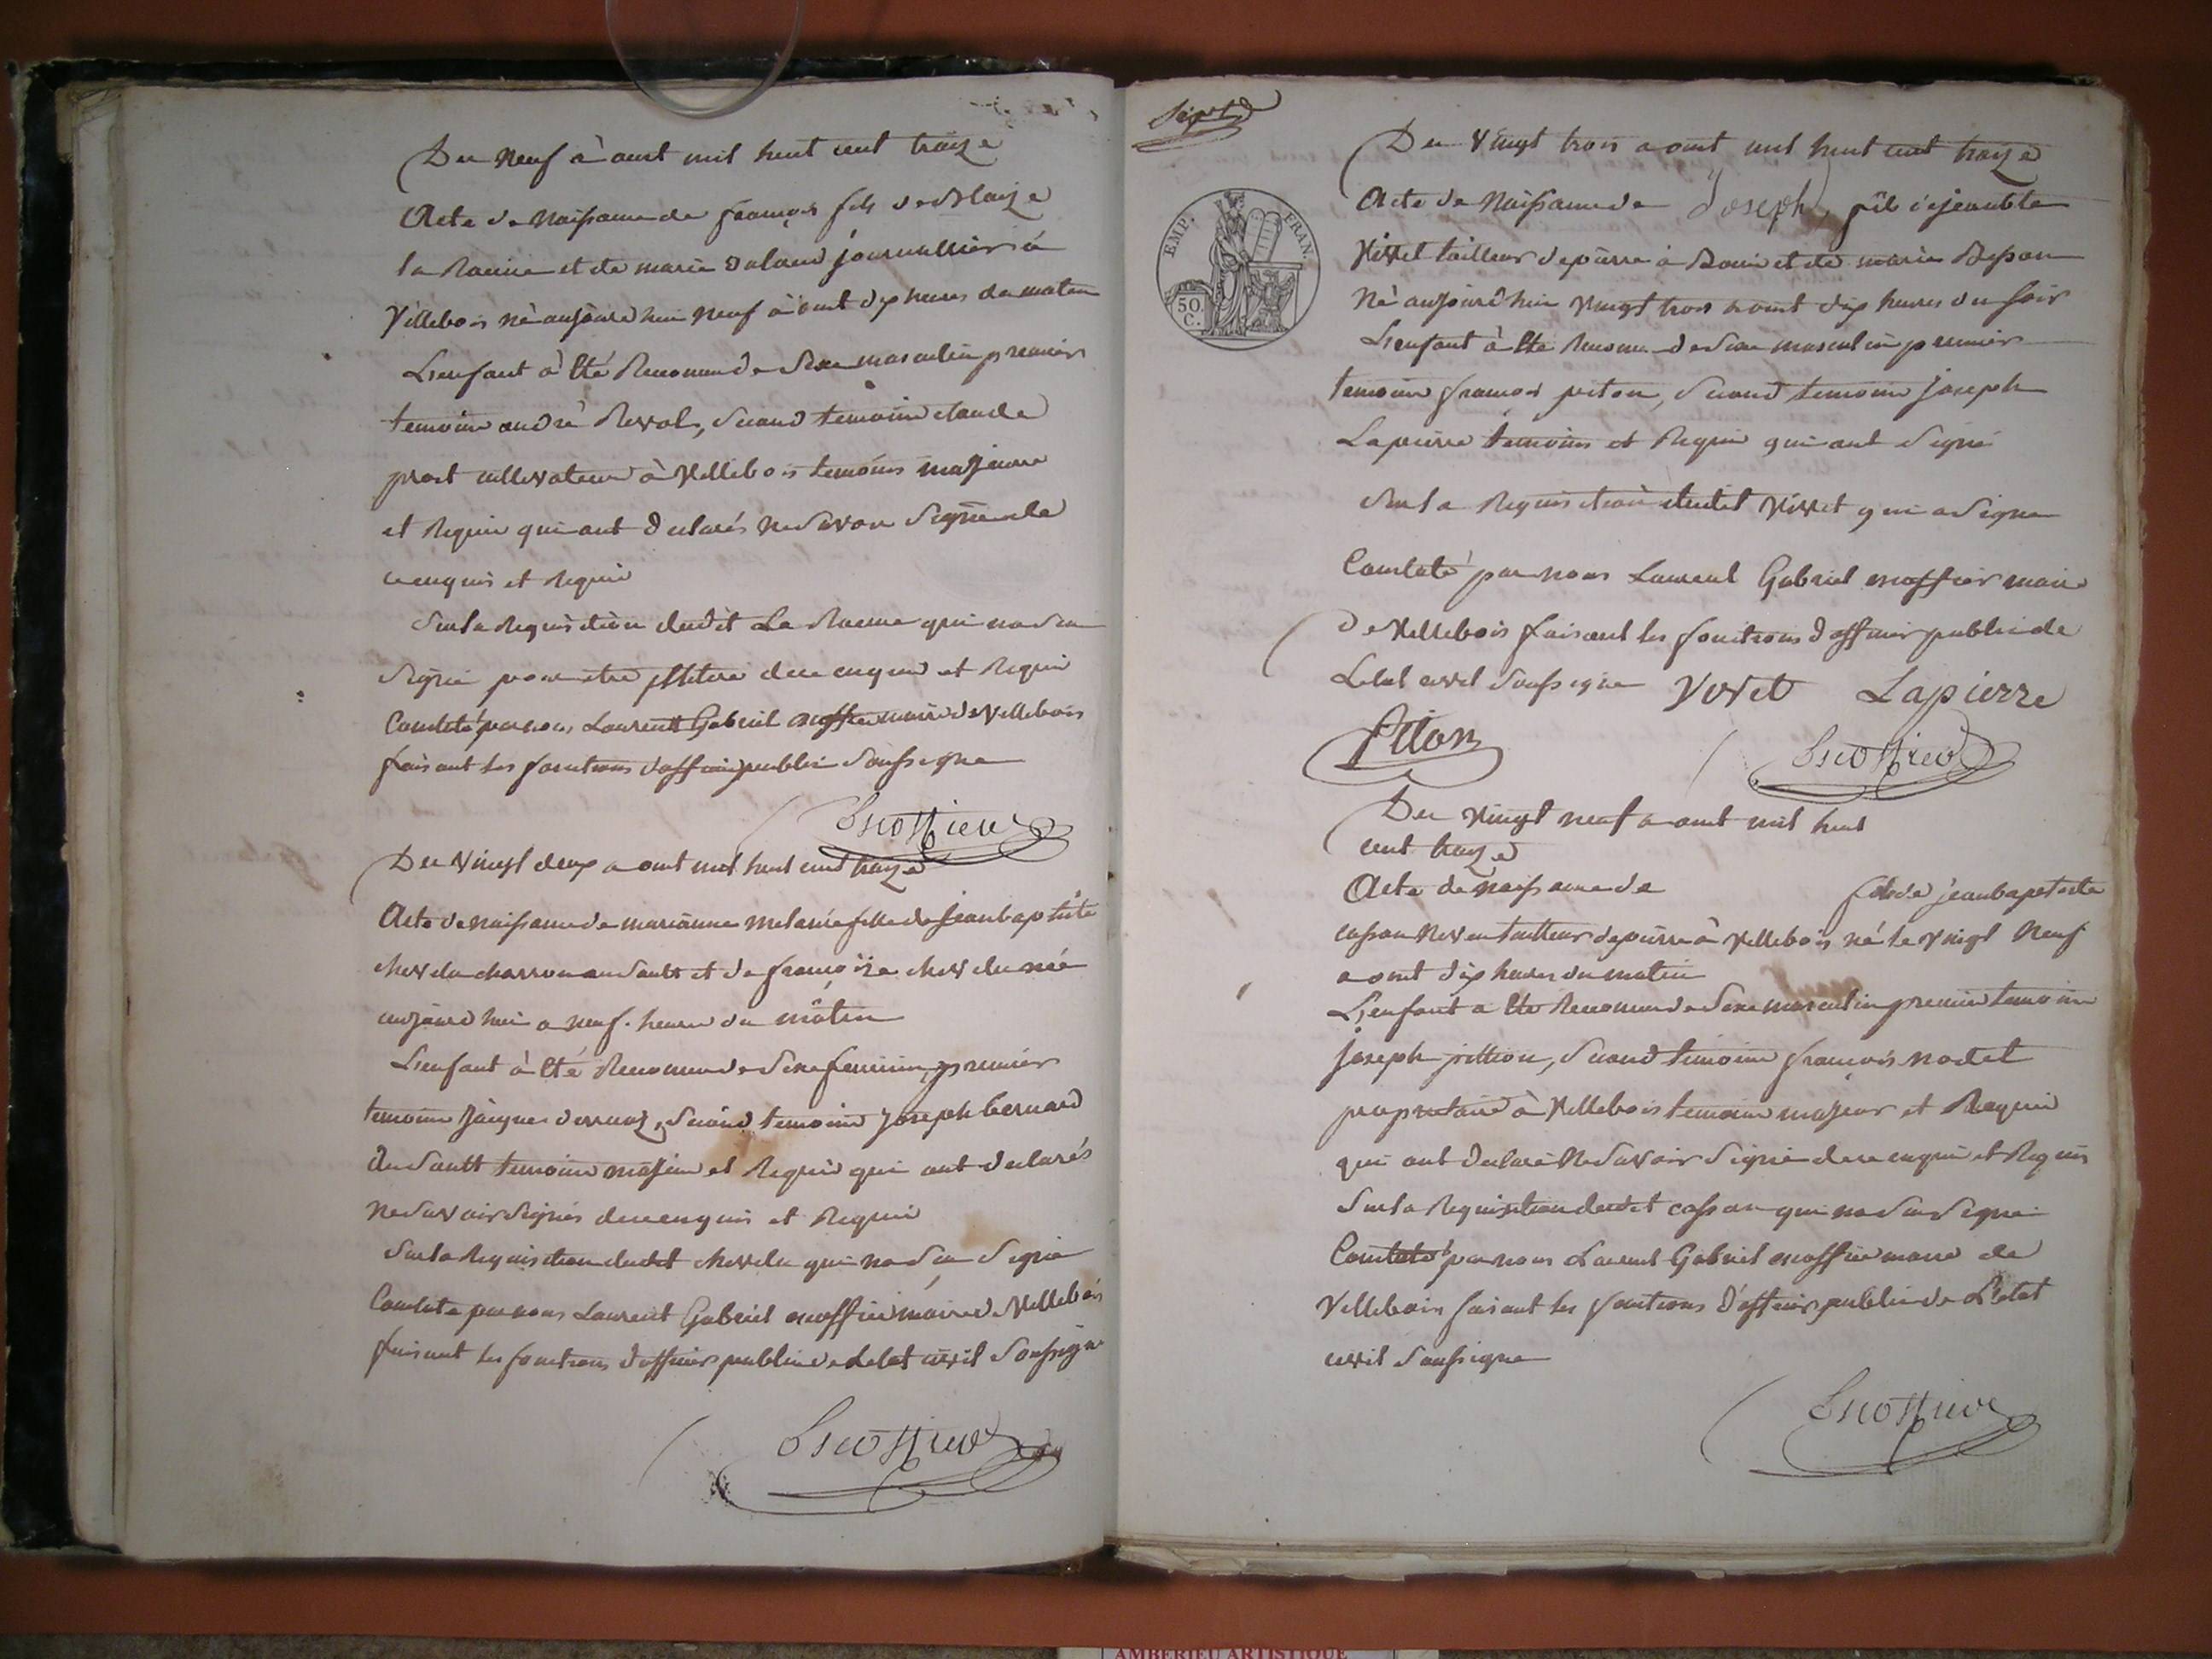 Du Neuf à aout mil huit cent traize
Acte de Naissance de françois fils de Blaize
la Racine et de marie journallier à
Villebois né aujourd'hui Neuf à out dix heures du matin
L'enfant à été Reconnu de Sexe masculin premier
temoin andré Revol, Second temoin claude
prost cultivateur à Villebois temoins majeure
et Requis qui ont declarés ne Savoir Signé de
ce enquis et Requis
Sur la Requisition dudit La Racine qui na Su
Signé pour être de ce enquis et Requis
Constaté par nous Laurent Gabriel escoffier maire de Villebois
faisant les fonctions d'officier public Soussigné
Escoffier
Du Vingt deux a out mil huit cent traize
Acte de naissance de marianne melanie fille de Jean baptiste
chevelu charron au Sault et de françoise chevelu née
aujourd'hui a neuf heures du matin
L'enfant à été Reconnu de Sexe feminin, premier
temoin Jacques, Second temoin Joseph bernard
du Sault temoins majeur et Requis qui ont declarés
ne Savoir Signés de ce enquis et Requis
Sur la Requisition dudit chevelu qui na Su Signé
Constaté par nous Laurent Gabriel escoffier maire de Villebois
faisant les fonctions d'officier public de Letat civil Soussigné
Escoffier
Sept
EMP. FRAN.
50
C.
Du Vingt trois a out mil huit cent traize
Acte de Naissance de Joseph, fils de jean bte
Vivet tailleur de pierre à Bouis et de marie
Né aujourd'hui Vingt trois a out dix heures du Soir
L'enfant à été Reconnu de Sexe masculin premier
temoin françois piton, Second temoin joseph
Lapierre temoins et Requis qui ont Signé
Sur la Requisition dudit Vivet qui a Signé
Constaté par nous Laurent Gabriel escoffier maire
De Villebois faisant les fonctions d'officier public de
Letat civil Soussigné Vivet Lapierre
Piton Escoffier
Du Vingt neuf a out mil huit
cent traize
Acte de naissance de fils de jean baptiste
tailleur de pierre à Villebois né le Vingt Neuf
a out dix heures du matin
L'enfant a été Reconnu de Sexe masculin premier temoin
joseph, Second temoin françois nodet
propriétaire à Villebois temoins majeur et Requis
qui ont declaré Ne Savoir Signé de ce enquis et Requis
Sur la Requisition dudit casson qui na Su Signé
Constaté par nous Laurent Gabriel escoffier maire de
Villebois faisant les fonctions d'officier public de L'etat
civil Soussigné
Escoffier
AMBERIEU ARTISTIQUE